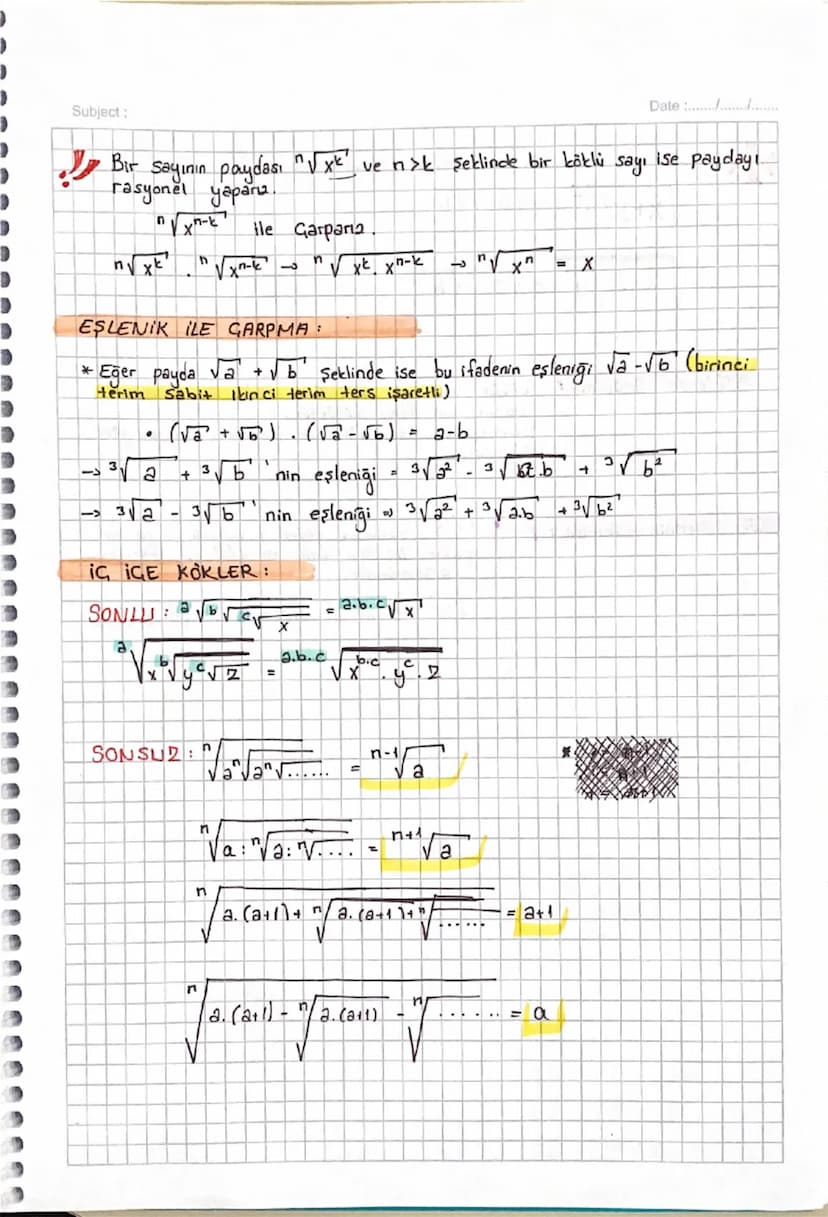 Subject :
Date :....../....../......
Bir sayının paydası ⁿ√x^k ve n>k şeklinde bir köklü sayı ise paydayı
rasyonel yaparız.
ⁿ√x^(n-k) ile Çarparız.
ⁿ√x^k . ⁿ√x^(n-k) → ⁿ√x^k. x^(n-k) → ⁿ√xⁿ = x
EŞLENİK İLE ÇARPMA :
* Eğer payda √a + √b şeklinde ise bu ifadenin eşleniği √a - √b (birinci
terim sabit ikinci terim ters işaretli)
• (√a + √b) . (√a - √b) = a-b
→ ³√a + ³√b 'nin eşleniği = ³√a² - ³√a.b + ³√b²
→ ³√a - ³√b 'nin eşleniği = ³√a² + ³√a.b + ³√b²
İÇ İÇE KÖKLER :
SONLU : ᵃ√ᵇ√ᶜ√x = ᵃ·ᵇ·ᶜ√x
ᵃ√x ᵇ√y ᶜ√z = ᵃ·ᵇ·ᶜ√x^(b.c) . y^c . z
SONSUZ : ⁿ√a ⁿ√a ⁿ√...... = ⁿ⁻¹√a
ⁿ√a : ⁿ√a : ⁿ√.... = ⁿ⁺¹√a
ⁿ√a.(a+1) + ⁿ√a.(a+1) + ⁿ√...... = a+1
ⁿ√a.(a+1) - ⁿ√a.(a+1) - ⁿ√...... = a